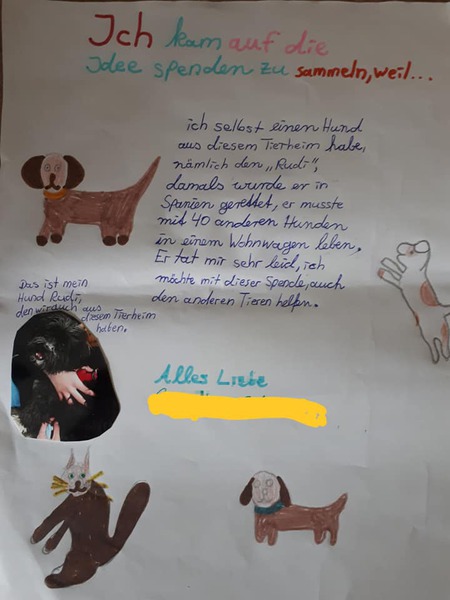 Ich kam auf die
Idee spenden zu sammeln, weil...
ich selbst einen Hund
aus diesem Tierheim habe,
nämlich den „Rudi",
damals wurde er in
Spanien gerettet, er musste
mit 40 anderen Hunden
in einem Wohnwagen leben.
Er tat mir sehr leid, ich
möchte mit dieser Spende, auch
den anderen Tieren helfen.
Das ist mein
Hund Rudi,
den wir auch aus
diesem Tierheim
haben.
Alles Liebe